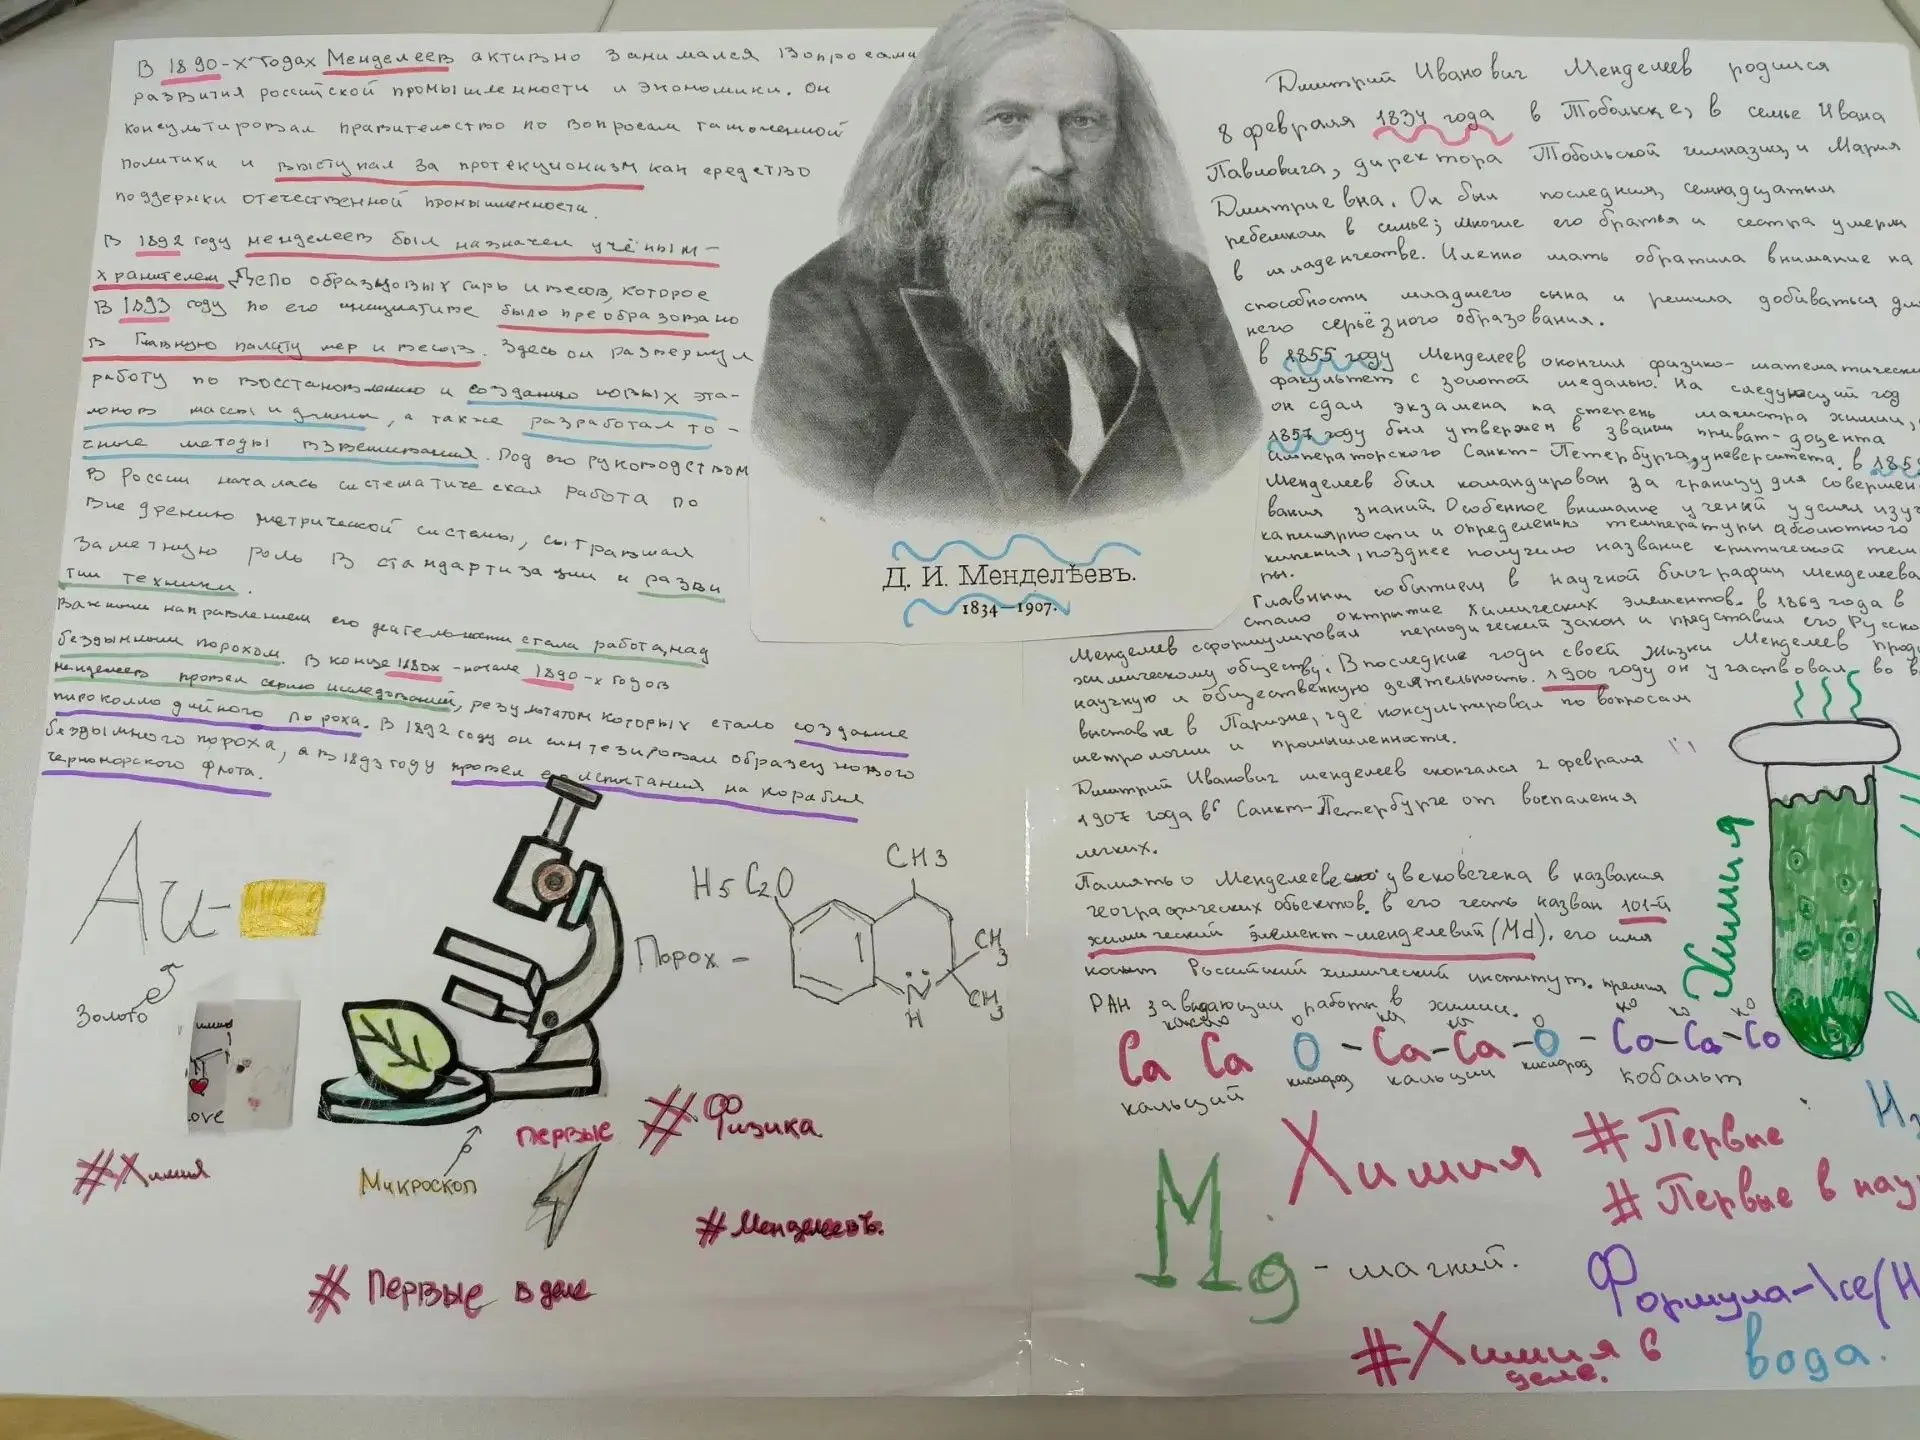 В 1890-х годах Менделеев активно занимался вопросами
развития российской промышленности и экономики. Он
консультировал правительство по вопросам таможенной
политики и выступал за протекционизм как средство
поддержки отечественной промышленности.
В 1892 году менделеев был назначен учёным-
хранителем Депо образцовых гирь и весов, которое
В 1893 году по его инициативе было преобразовано
в Главную палату мер и весов. Здесь он развернул
работу по восстановлению и созданию новых эта-
лонов массы и длины, а также разработал то-
чные методы взвешивания. Под его руководством
в России началась систематическая работа по
внедрению метрической системы, сыгравшая
заметную роль в стандартизации и разви
тии техники.
Важным направлением его деятельности стала работа над
бездымным порохом. В конце 1880х - начале 1890-х годов
менделеев провел серию исследований, результатом которых стало создание
пироколлодийного пороха. В 1892 году он синтезировал образец нового
бездымного пороха, а в 1893 году провел его испытания на корабля
черноморского флота.
Д. И. Менделѣевъ.
1834—1907.
Дмитрий Иванович Менделеев родился
8 февраля 1834 года в Тобольске, в семье Ивана
Павловича, директора Тобольской гимназии, и Мария
Дмитриевна. Он был последним, семнадцатым
ребенком в семье; многие его братья и сестра умерли
в младенчестве. Именно мать обратила внимание на
способности младшего сына и решила добиваться для
него серьёзного образования.
в 1855 году Менделеев окончил физико-математически
факультет с золотой медалью. На следующий год
он сдал экзамена на степень магистра химии,
1857 году был утвержен в звании приват-доцента
императорского Санкт-Петербурга, университета. в 1859
Менделеев был командирован за границу для совершен
вания знаний. Особенное внимание ученый уделял изуч
капиярности и определенью температуры абсолютного
кипения, позднее получило название критической тем
ры.
Главным событием в научной биографии Менделеева
стало октрытие Химических элементов. в 1869 года в
Менделеев сформулировал периодический закон и представил его Русско
химическому обществу. В последние годы своей жизни Менделеев прод
научную и общественную деятельность. 1900 году он участвовал во в
выставке в Париже, где консультировал по вопросам
метрологии и промышленности.
Дмитрий Иванович менделеев скончался 2 февраля
1907 года в Санкт-Петербурге от воспаления
легких.
Память о Менделееве увековечена в названия
географических объектов. в его честь назван 101-й
химический элемент-менделевий (Md). его имя
носит Российский химический институт. премия
РАН за выдающии работы в химии.
Au-
Золото
Love
Порох -
H5C2O
CH3
CH3
CH3
N
H
Микроскоп
#Химия
Первые
#Физика
#Менделеевъ.
#Первые в деле
Химия
Ca Ca O - Ca-Ca-O - Co-Ca-Co
кальций кислород кальции кислород кобальт
Химия
#Первые
#Первые в нау
Mg - магний.
Формула-\се/Н
#Химия в
деле.
вода.